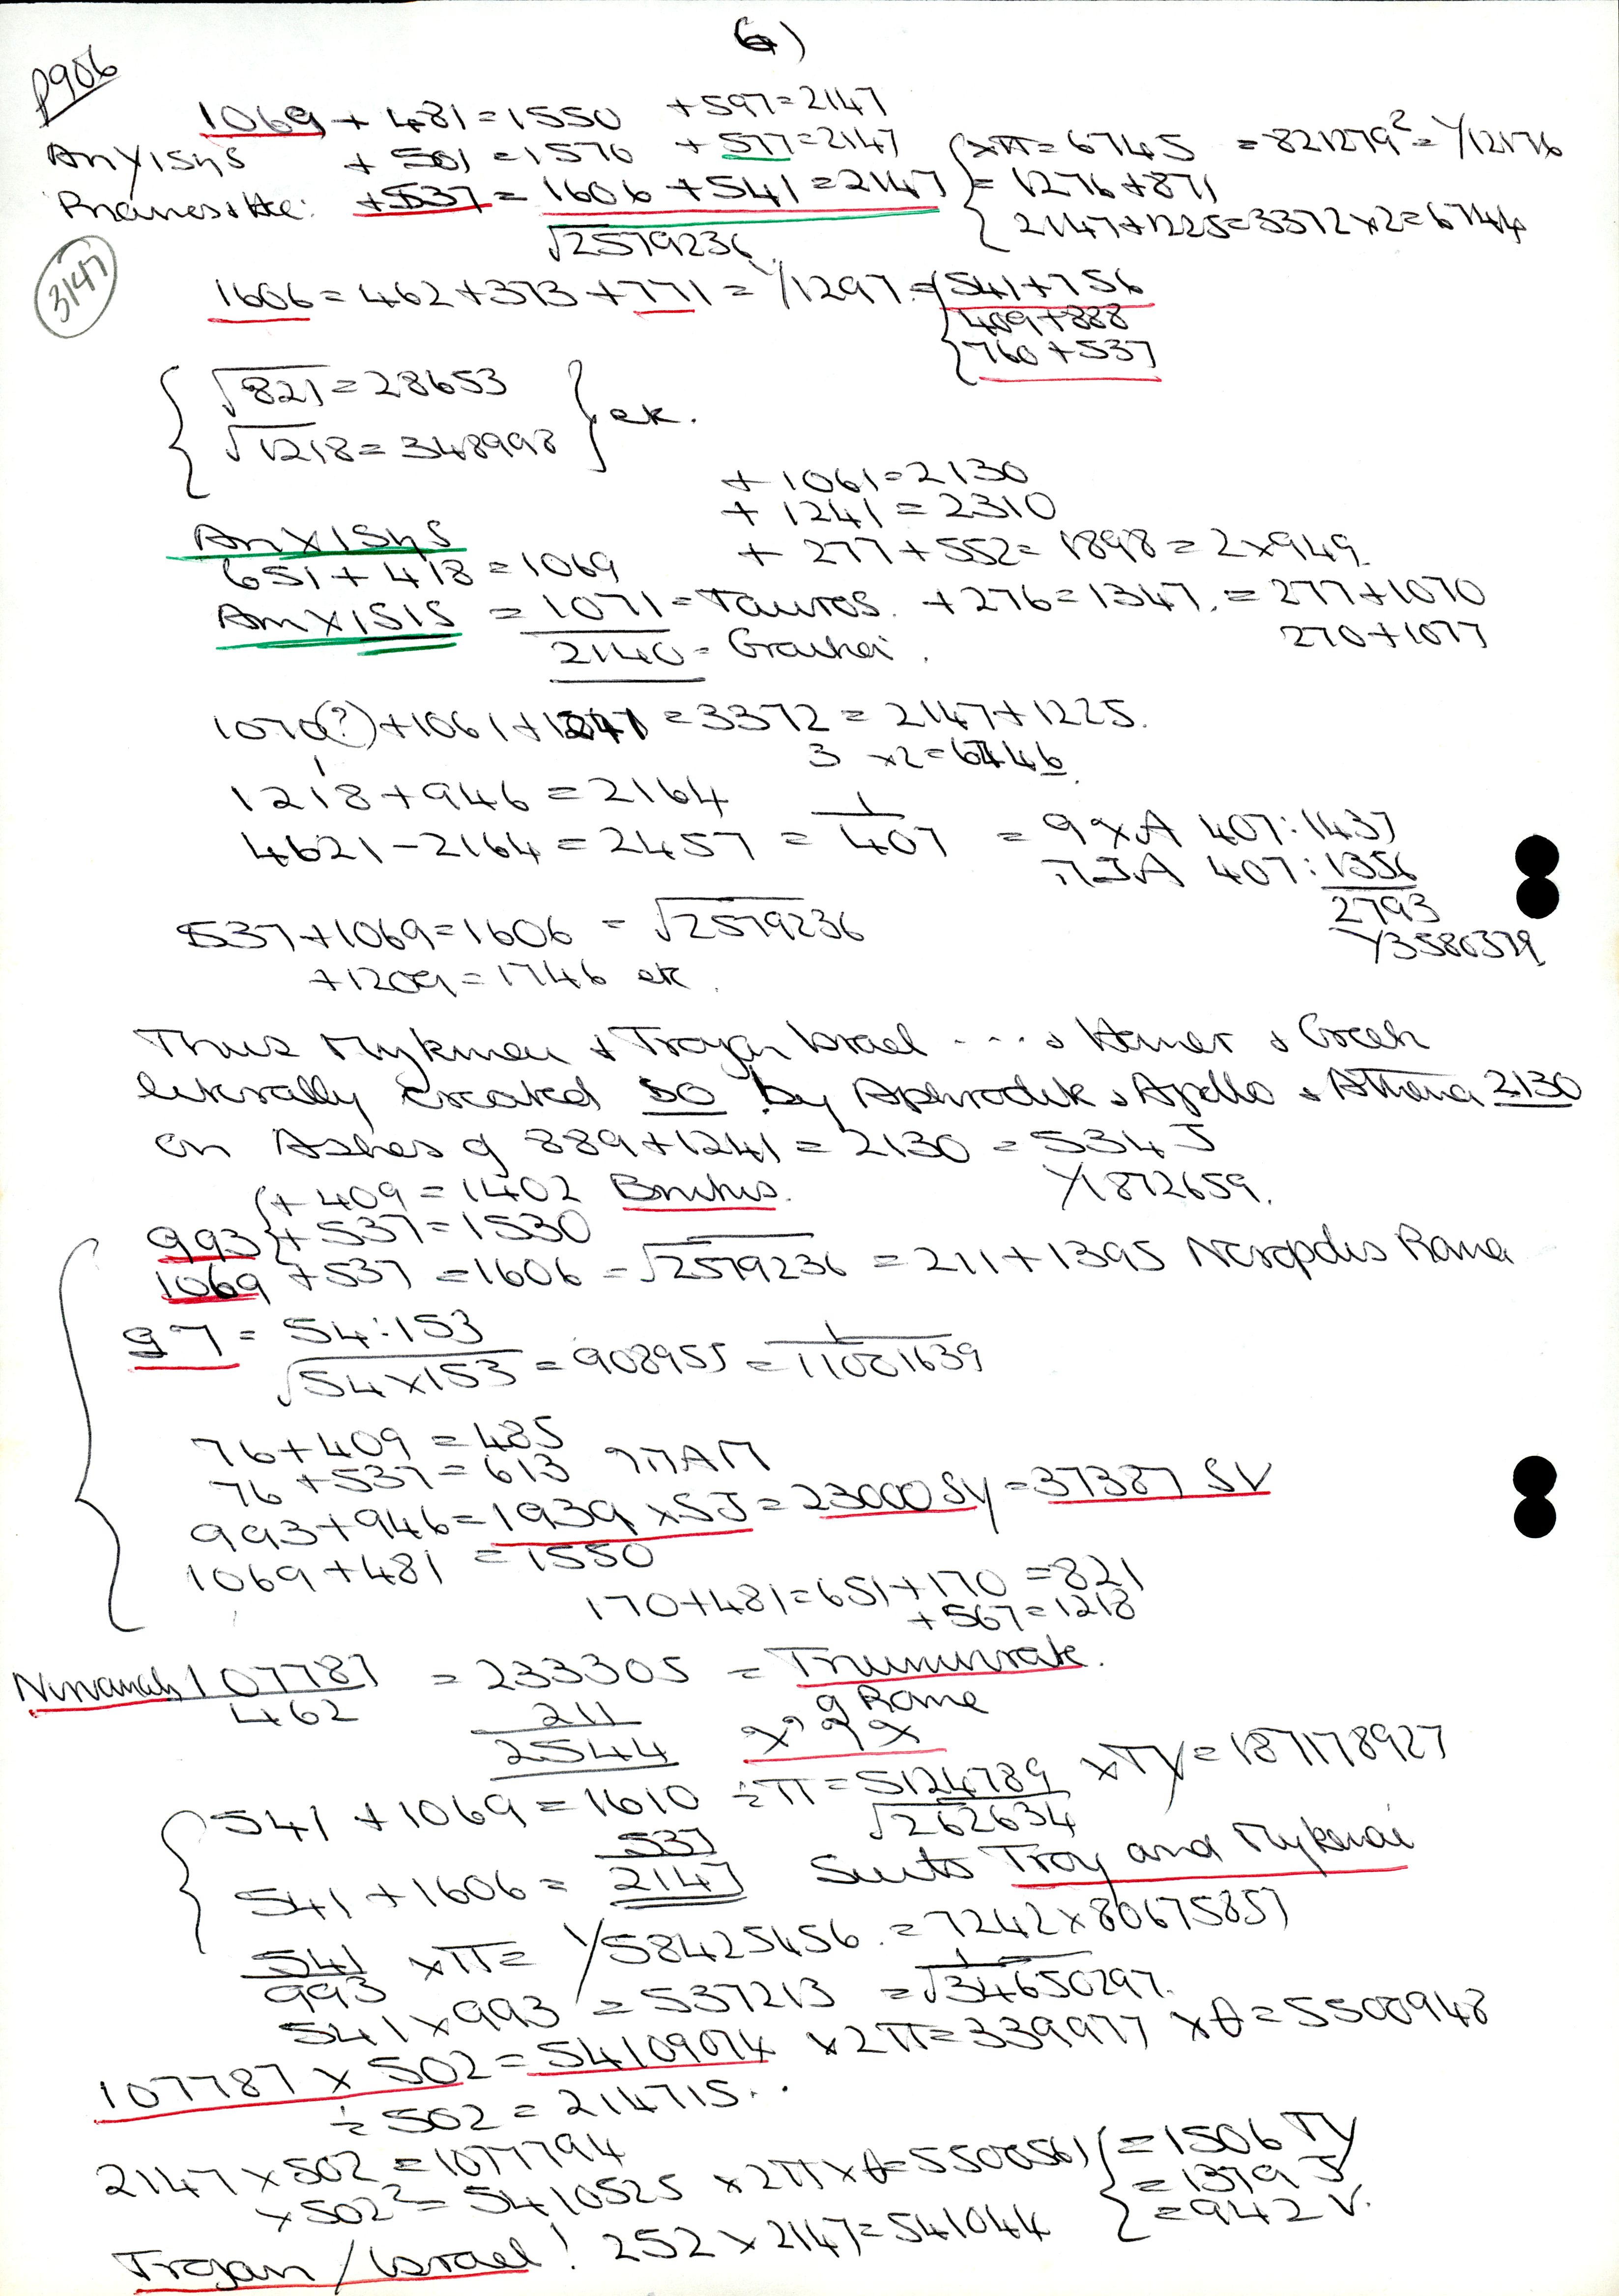 6)
P906
1069 + 481 = 1550 + 597 = 2147
Anyisys + 501 = 1570 + 577 = 2147 { x π = 6745 = 821279² = Y12176
+ 537 = 1606 + 541 = 2147 = 1276 + 871
√2579236 { 2147 + 1225 = 3372 x 2 = 6744
3147
1606 = 462 + 373 + 771 = Y1297 = { 541 + 756
409 + 888
760 + 537
√821 = 28653
√1218 = 348998 } etc.
+ 1061 = 2130
+ 1241 = 2310
AnXISyS + 277 + 552 = 1898 = 2 x 949
651 + 418 = 1069
AmXISIS = 1071 = Tauros. + 276 = 1347. = 277 + 1070
2140 = Graikoi. 270 + 1077
1070(?) + 1061 + 1241 = 3372 = 2147 + 1225.
1 3 x 2 = 6746
1218 + 946 = 2164
4621 - 2164 = 2457 = 1/407 = 9 x A 407 : 1437
π J A 407 : 1356
2793
Y3580379
537 + 1069 = 1606 = √2579236
+ 1209 = 1746 etc.
Thus Mykenai & Trojan Israel .... & Homer & Greek
literally created SO by Aphrodite & Apollo & Athena 2130
on Ashes of 889 + 1241 = 2130 = 534 J
Y1872659.
993 { + 409 = 1402 Brutus.
+ 537 = 1530
1069 + 537 = 1606 = √2579236 = 211 + 1395 Necropolis Roma
97 = 54 : 153
√54 x 153 = 908955 = 1/11001639
76 + 409 = 485
76 + 537 = 613
993 + 946 = 1939 x SJ = 23000 SY = 37387 SV
1069 + 481 = 1550
170 + 481 = 651 + 170 = 821
+ 567 = 1218
107787/462 = 233305 = Triumvirate.
211 of Rome
2544
541 + 1069 = 1610 ÷ π = 5124789 x TY = 187178927
537 √262634
541 + 1606 = 2147 Suits Troy and Mykenai
541/993 x π = Y58425456. = 7242 x 80675857
541 x 993 = 537213 = 1/√34650297.
107787 x 502 = 54109074 x 2π = 339977 x θ = 5500948
÷ 502 = 214715..
2147 x 502 = 1077794
x 502² = 5410525 x 2π x θ = 5500561 { = 1506 TY
= 1379 J
= 942 V.
Trojan / Israel! 252 x 2147 = 541044